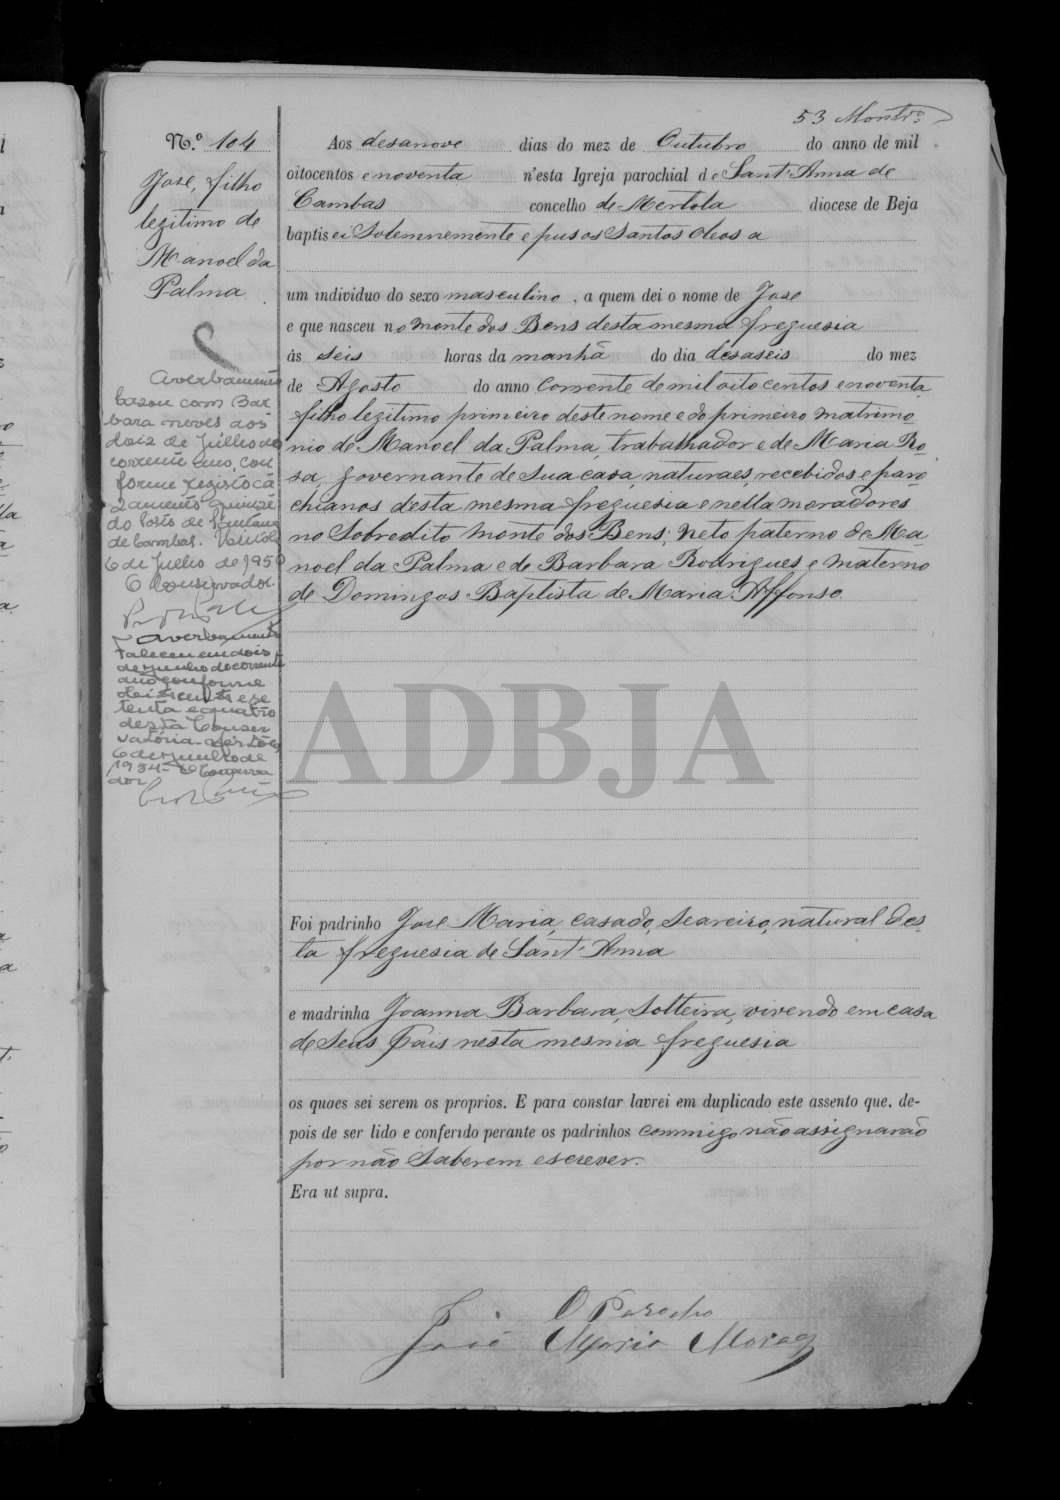 53 Montrº
N.º 104
Jose, filho
legitimo de
Manoel da
Palma
Averbamento
casou com Bar
bara neves aos
dois de Julho do
corrente ano, con
forme registo ca
samento quinze
do Posto de Santana
de Cambas.
6 de Julho de 1950
O Conservador
Averbamento
Faleceu em dois
de Junho do corrente
ano conforme
e se
tenta e quatro
desta Conser
vatória
6 de Junho de
1954 - O Conserva
dor
Aos desanove dias do mez de Outubro do anno de mil
oitocentos e noventa n'esta Igreja parochial de Sant'Anna de
Cambas concelho de Mertola diocese de Beja
baptisei Solemnemente e pus os Santos Oleos a
um individuo do sexo masculino, a quem dei o nome de Jose
e que nasceu no monte dos Bens desta mesma freguesia
ás seis horas da manhã do dia desaseis do mez
de Agosto do anno corrente de mil oito centos e noventa
filho legitimo primeiro deste nome e do primeiro matrimo
nio de Manoel da Palma, trabalhador e de Maria Ro
sa, governante de sua casa, naturaes, recebidos e paro
chianos desta mesma freguesia e nella moradores
no Sobredito monte dos Bens; neto paterno de Ma
noel da Palma e de Barbara Rodrigues e materno
de Domingos Baptista de Maria Affonso.
ADBJA
Foi padrinho Jose Maria, casado, Seareiro, natural des
ta freguesia de Sant'Anna
e madrinha Joanna Barbara, Solteira, vivendo em casa
de Seus Pais nesta mesma freguesia
os quaes sei serem os proprios. E para constar lavrei em duplicado este assento que, de-
pois de ser lido e conferido perante os padrinhos commigo não assignarão
por não Saberem escrever.
Era ut supra.
O Parocho
José Maria